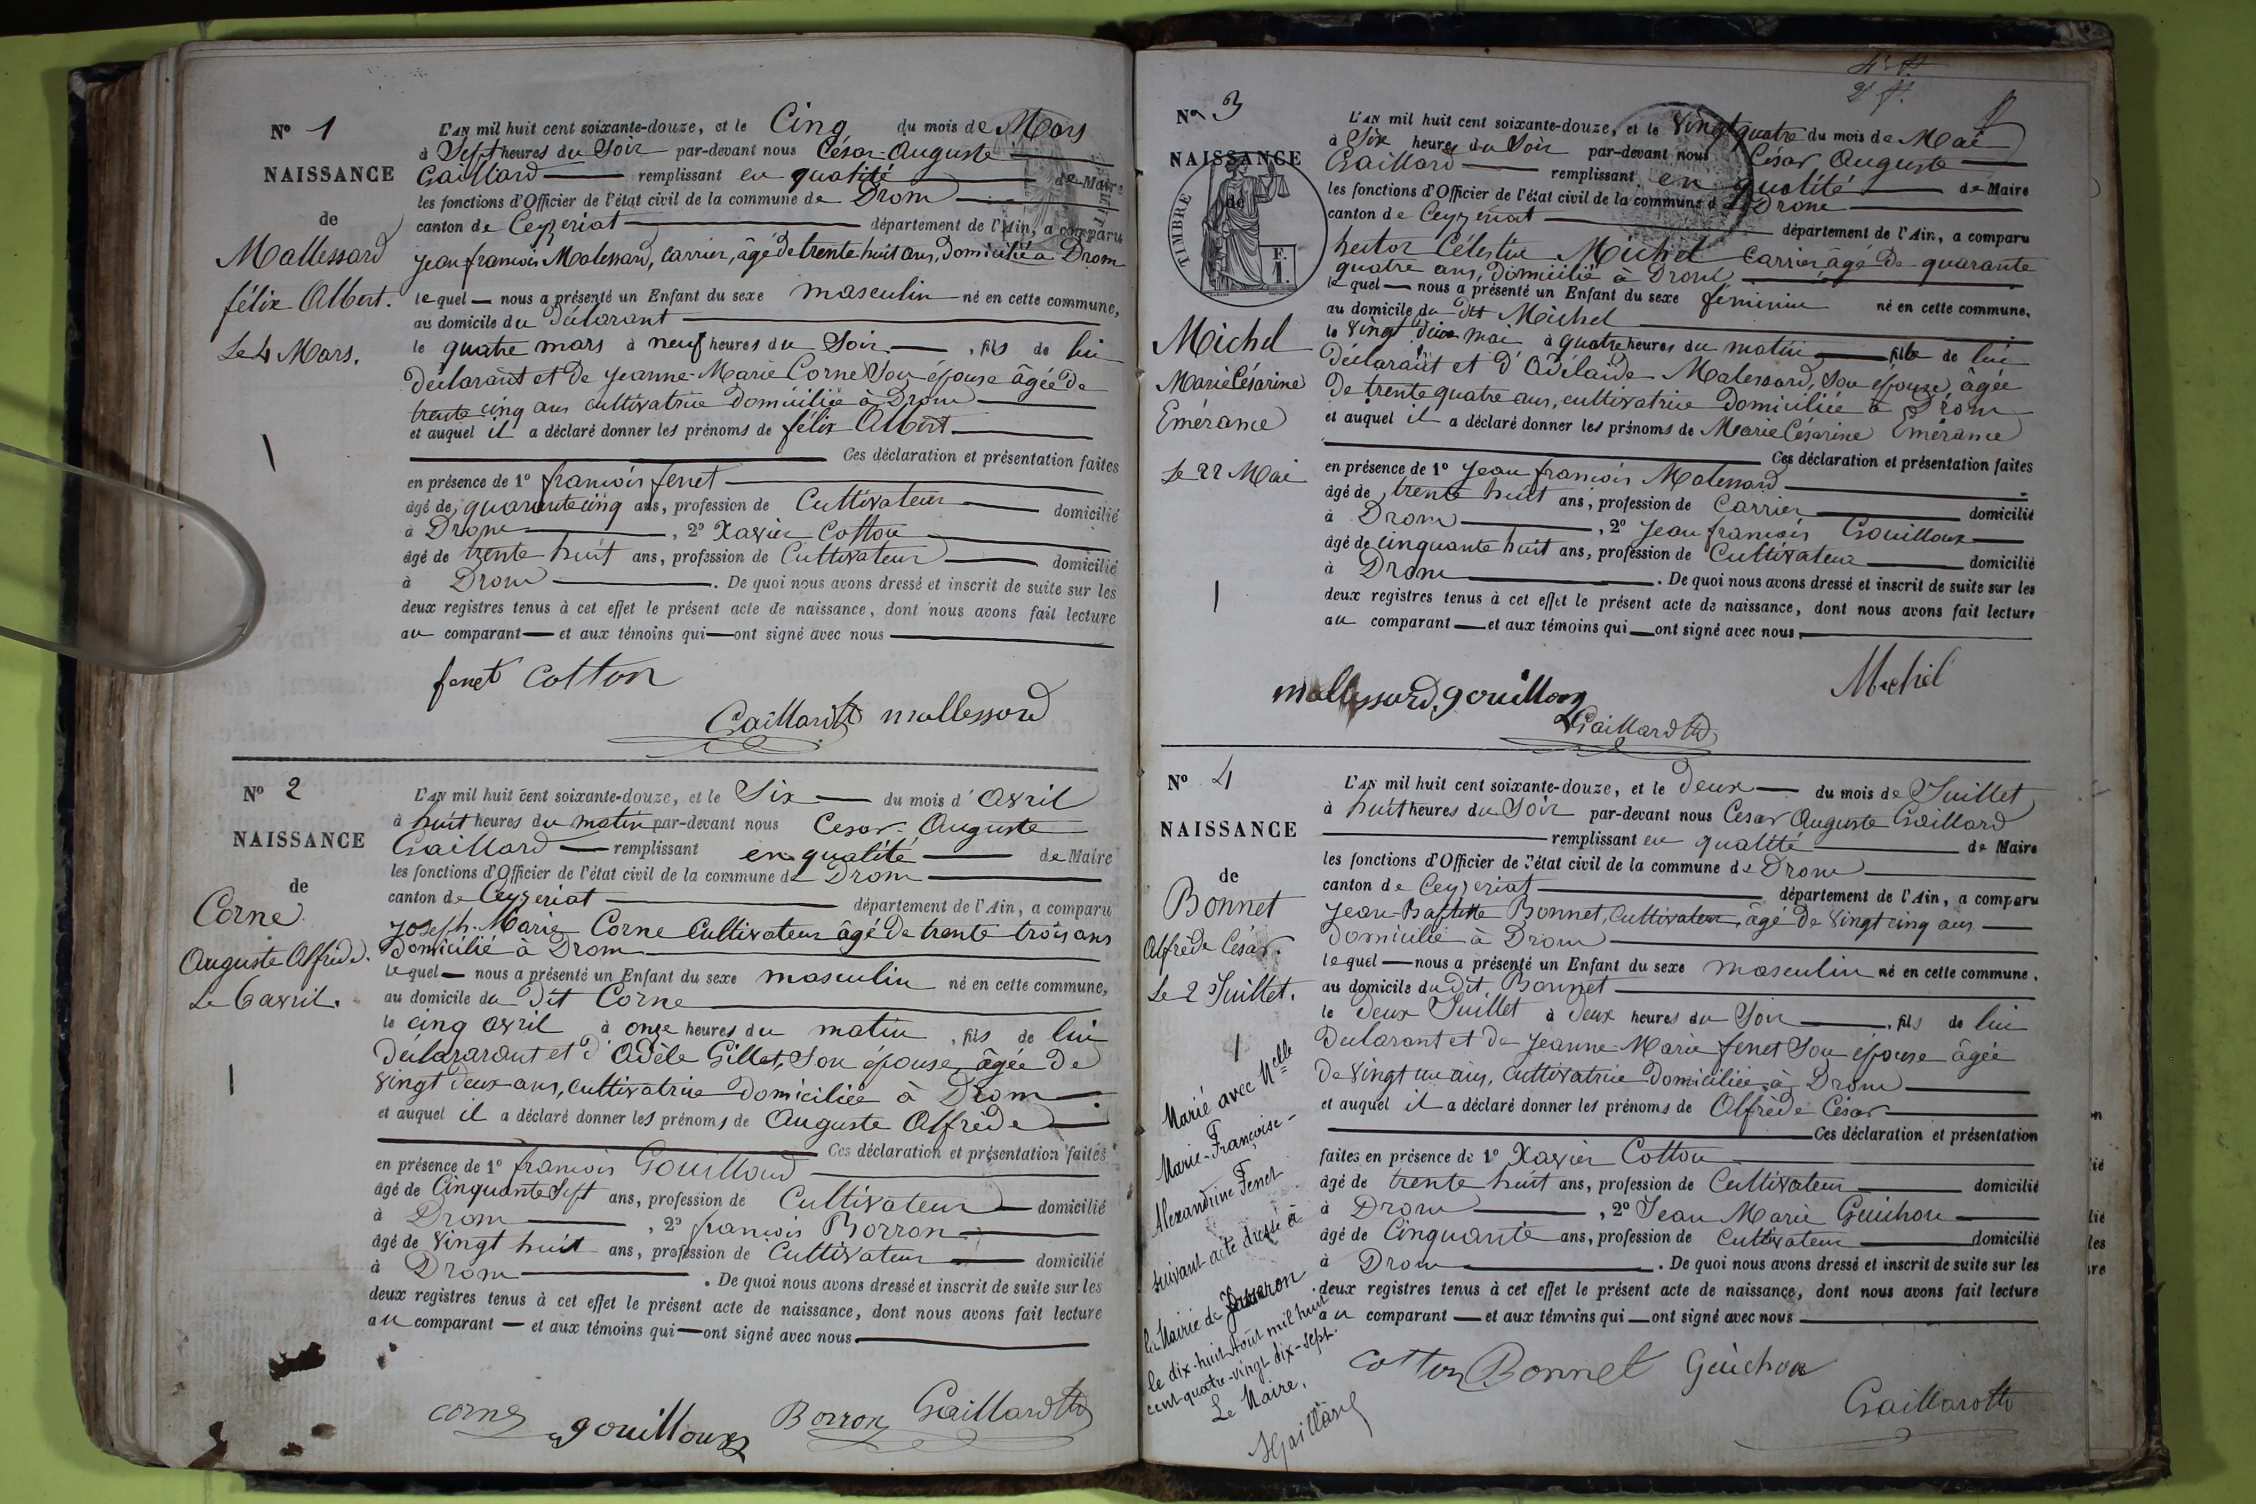 N° 1
NAISSANCE
de
Mallessard
félix Albert.
Le 4 Mars.
L'AN mil huit cent soixante-douze, et le Cinq du mois de Mars
à Sept heures du Soir par-devant nous César-Auguste
Gaillard remplissant en qualité de Maire
les fonctions d'Officier de l'état civil de la commune de Drom
canton de Ceyzeriat département de l'Ain, a comparu
Jean francois Malessard, carrier, âgé de trente huit ans, domicilié à Drom
lequel nous a présenté un Enfant du sexe masculin né en cette commune,
au domicile du déclarant
le quatre mars à neuf heures du Soir, fils de lui
déclarant et de Jeanne-Marie Corne Son épouse âgée de
trente cinq ans cultivatrice domiciliée à Drom
et auquel il a déclaré donner les prénoms de félix Albert
Ces déclaration et présentation faites
en présence de 1° francois fenet
âgé de quarante cinq ans, profession de Cultivateur domicilié
à Drom, 2° Xavier Cotton
âgé de trente huit ans, profession de Cultivateur domicilié
à Drom. De quoi nous avons dressé et inscrit de suite sur les
deux registres tenus à cet effet le présent acte de naissance, dont nous avons fait lecture
au comparant et aux témoins qui ont signé avec nous
fenet Cotton
Gaillard mallessard
N° 2
NAISSANCE
de
Corne
Auguste Alfrède.
Le 6 avril.
L'AN mil huit cent soixante-douze, et le Six du mois d'Avril
à huit heures du matin par-devant nous Cesar-Auguste
Gaillard remplissant en qualité de Maire
les fonctions d'Officier de l'état civil de la commune de Drom
canton de Ceyzeriat département de l'Ain, a comparu
Joseph-Marie Corne Cultivateur âgé de trente trois ans
domicilié à Drom
lequel nous a présenté un Enfant du sexe masculin né en cette commune,
au domicile du dit Corne
le cinq avril à onze heures du matin, fils de lui
déclararant et d'Adèle Gillet, Son épouse, âgée de
vingt deux ans, cultivatrice domiciliée à Drom
et auquel il a déclaré donner les prénoms de Auguste Alfrède
Ces déclaration et présentation faites
en présence de 1° francois Gouilloud
âgé de Cinquante Sept ans, profession de Cultivateur domicilié
à Drom, 2° françois Borron
âgé de vingt huit ans, profession de Cultivateur domicilié
à Drom. De quoi nous avons dressé et inscrit de suite sur les
deux registres tenus à cet effet le présent acte de naissance, dont nous avons fait lecture
au comparant et aux témoins qui ont signé avec nous
corne gouilloux Borron Gaillard
N° 3
NAISSANCE
de
TIMBRE
F.
1.
Michel
Marie Césarine
Emérance
Le 22 Mai
L'AN mil huit cent soixante-douze, et le vingt quatre du mois de Mai
à Six heures du Soir par-devant nous César Auguste
Gaillard remplissant en qualité de Maire
les fonctions d'Officier de l'état civil de la commune de Drom
canton de Ceyzeriat département de l'Ain, a comparu
hector Célestin Michel carrier âgé de quarante
quatre ans, domicilié à Drom
lequel nous a présenté un Enfant du sexe féminin né en cette commune,
au domicile du dit Michel
le vingt deux mai à quatre heures du matin fille de lui
déclarant et d'Adélaïde Malessard, Son épouse, âgée
de trente quatre ans, cultivatrice domiciliée à Drom
et auquel il a déclaré donner les prénoms de Marie Césarine Emérance
Ces déclaration et présentation faites
en présence de 1° Jean francois Malessard
âgé de trente huit ans, profession de Carrier domicilié
à Drom, 2° Jean francois Gouilloux
âgé de cinquante huit ans, profession de Cultivateur domicilié
à Drom. De quoi nous avons dressé et inscrit de suite sur les
deux registres tenus à cet effet le présent acte de naissance, dont nous avons fait lecture
au comparant et aux témoins qui ont signé avec nous
Michel
mallessard, gouilloux
Gaillard
N° 4
NAISSANCE
de
Bonnet
Alfrède César.
Le 2 Juillet.
L'AN mil huit cent soixante-douze, et le deux du mois de Juillet
à huit heures du Soir par-devant nous Cesar Auguste Gaillard
remplissant en qualité de Maire
les fonctions d'Officier de l'état civil de la commune de Drom
canton de Ceyzeriat département de l'Ain, a comparu
Jean-Baptiste Bonnet, Cultivateur, âgé de vingt cinq ans
domicilié à Drom
lequel nous a présenté un Enfant du sexe masculin né en cette commune,
au domicile du dit Bonnet
le deux Juillet à deux heures du Soir, fils de lui
déclarant et de Jeanne-Marie fenet Son épouse âgée
de vingt un ans, cultivatrice domiciliée à Drom
et auquel il a déclaré donner les prénoms de Alfrède César
Ces déclaration et présentation
faites en présence de 1° Xavier Cotton
âgé de trente huit ans, profession de Cultivateur domicilié
à Drom, 2° Jean Marie Guichon
âgé de Cinquante ans, profession de Cultivateur domicilié
à Drom. De quoi nous avons dressé et inscrit de suite sur les
deux registres tenus à cet effet le présent acte de naissance, dont nous avons fait lecture
au comparant et aux témoins qui ont signé avec nous
Marié avec Melle
Marie-Françoise-
Alexandrine Fenet
suivant acte dressé à
la Mairie de Jasseron
le dix-huit Août mil huit
cent quatre-vingt dix-sept.
Le Maire,
Gaillard
Cotton Bonnet Guichon
Gaillard